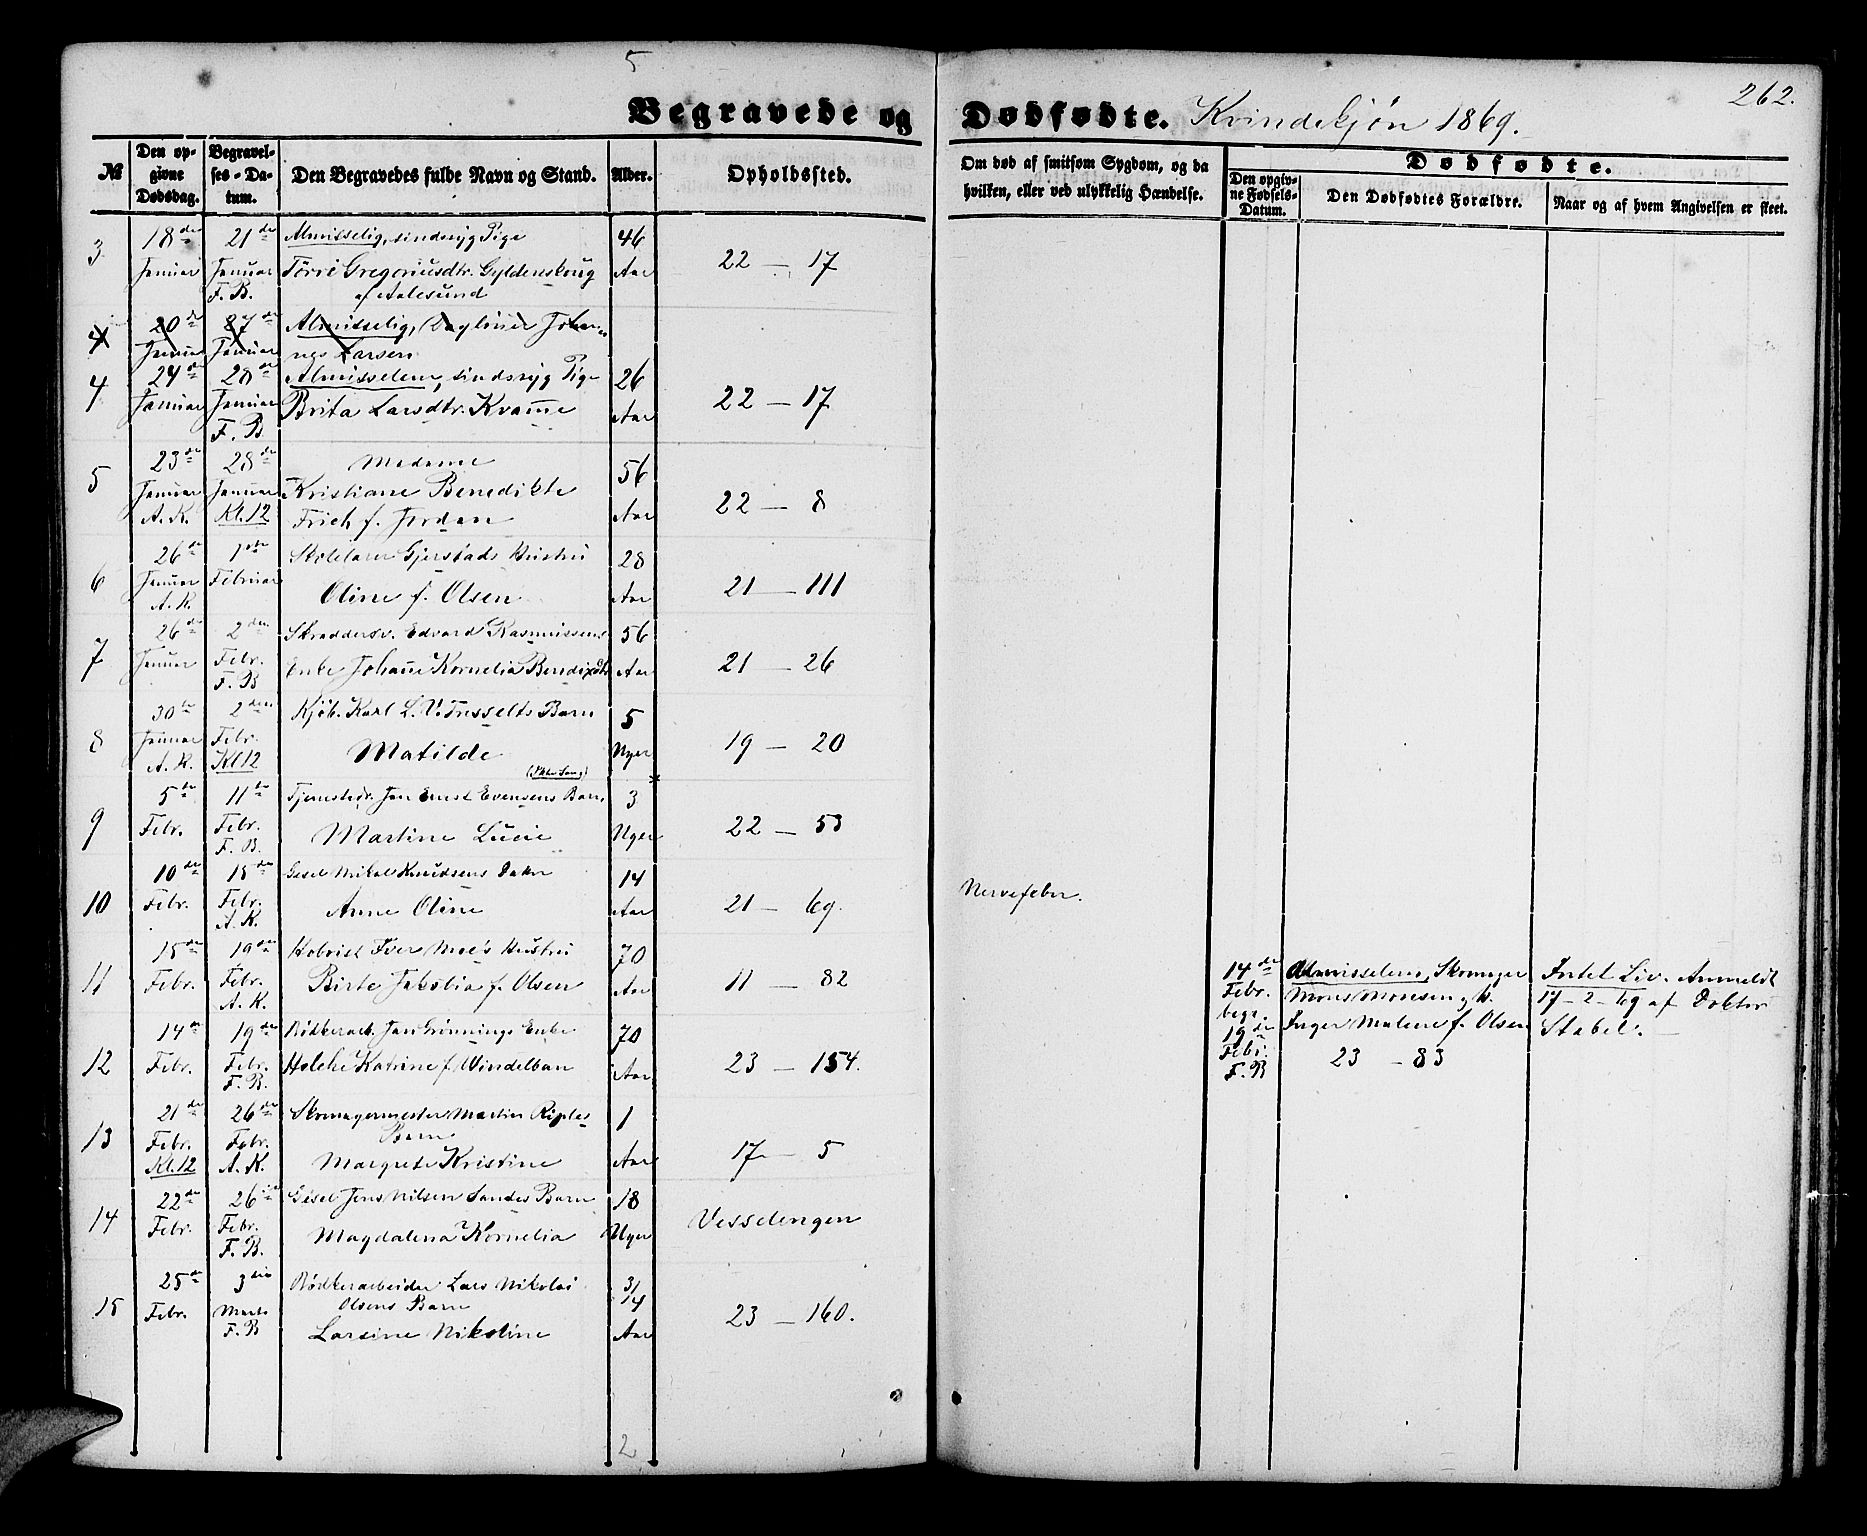 5
262.
Begravede og Dødfødte. Kvindekjøn 1869.
№
Den opgivne Dødsdag.
Begravelses-Datum.
Den Begravedes fulde Navn og Stand.
Alder.
Opholdssted.
Om død af smitsom Sygdom, og da hvilken, eller ved ulykkelig Hændelse.
Dødfødte.
Den opgivne Fødsels-Datum.
Den Dødfødtes Forældre.
Naar og af hvem Angivelsen er skeet.
3 18de 21de Almisselig, sindssyg Pige 46
Januar Januar Törri Gregoriusdtr. Gyldenskoug Aar 22 — 17
F. B. af Aalesund
4 20de 27de Almisselig, Dagløner Johan-
Januar Januar nes Larsen
4 24de 28de Almisselem, sindssyg Pige 26
Januar Januar Brita Larsdtr. Kvamme Aar 22 — 17
F. B.
5 23de 28de Madame 56
Januar Januar Kristiane Benedikte
A. K. Kl. 12 Frich f. Jordan Aar 22 — 8
6 26de 1ste Skolelærer Gjerstads Hustru 28
Januar Februar Oline f. Olsen Aar 21 — 111
A. K.
7 26de 2den Skræddersv. Edvard Rasmussens 56
Januar Febr. Enke Johanne Kornelia Bendixdtr Aar 21 — 26
F. B.
8 30te 2den Kjøb. Karl L. V. Barn 5
Januar Febr. Matilde Uger 19 — 20
A. K. Kl 12
9 5te 11te Jan Ernst Evensens Barn 3
Febr. Febr. Martine Lucie Uger 22 — 53
F. B.
10 10de 15de Gesel Mikal Knudsens Datter 14
Febr. Febr. Anne Oline Aar 21 — 69. Nervefeber.
A. K.
11 15de 19de Iver Moe's Hustru 70
Febr. Febr. Birte Jakobia f. Olsen Aar 11 — 82
A. K.
14de Almisselem, Skomager Intet Liv. Anmeldt
Febr. Mons Monsen og H. 17-2-69 af Doktor
begr. Inger Malene f. Olsen Stabel.
19de
Febr. 23 — 83
F. B
12 14de 19de Bødkerarb. Jan Grønnings Enke 70
Febr. Febr. Katrine f. Windelban Aar 23 — 154.
F. B.
13 21de 26de Skomagermester Martin Riples 1
Febr. Febr. Barn
Kl. 12 A. K. Margrete Kristine Aar 17 — 5
14 22de 26de Gesel Jens Nilsen Sandes Barn 18
Febr. Febr. Magdalena Kornelia Uger Vesselengen
F. B.
15 25de 3die Bødkerarbeider Lars Nikolai 3/14
Febr. Marts Olsens Barn
F. B Larsine Nikoline Aar 23 — 160.
2